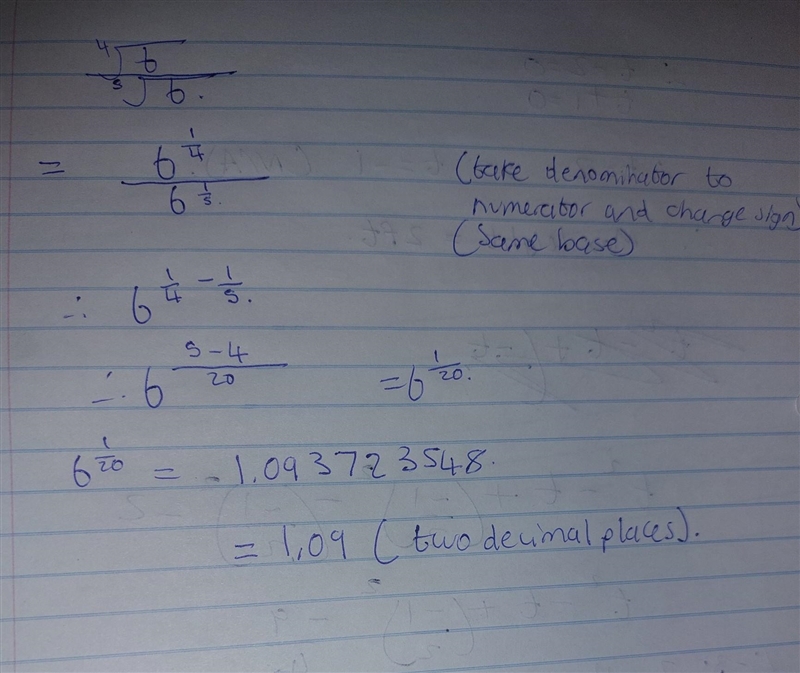 ⁴√6
⁵√6.
= 6^1/4
6^1/5.
(take denominator to
numerator and change sign)
(Same base)
∴ 6^1/4 - 1/5.
∴ 6^5-4/20 = 6^1/20.
6^1/20 = 1.0937223548.
= 1.09 (two decimal places).